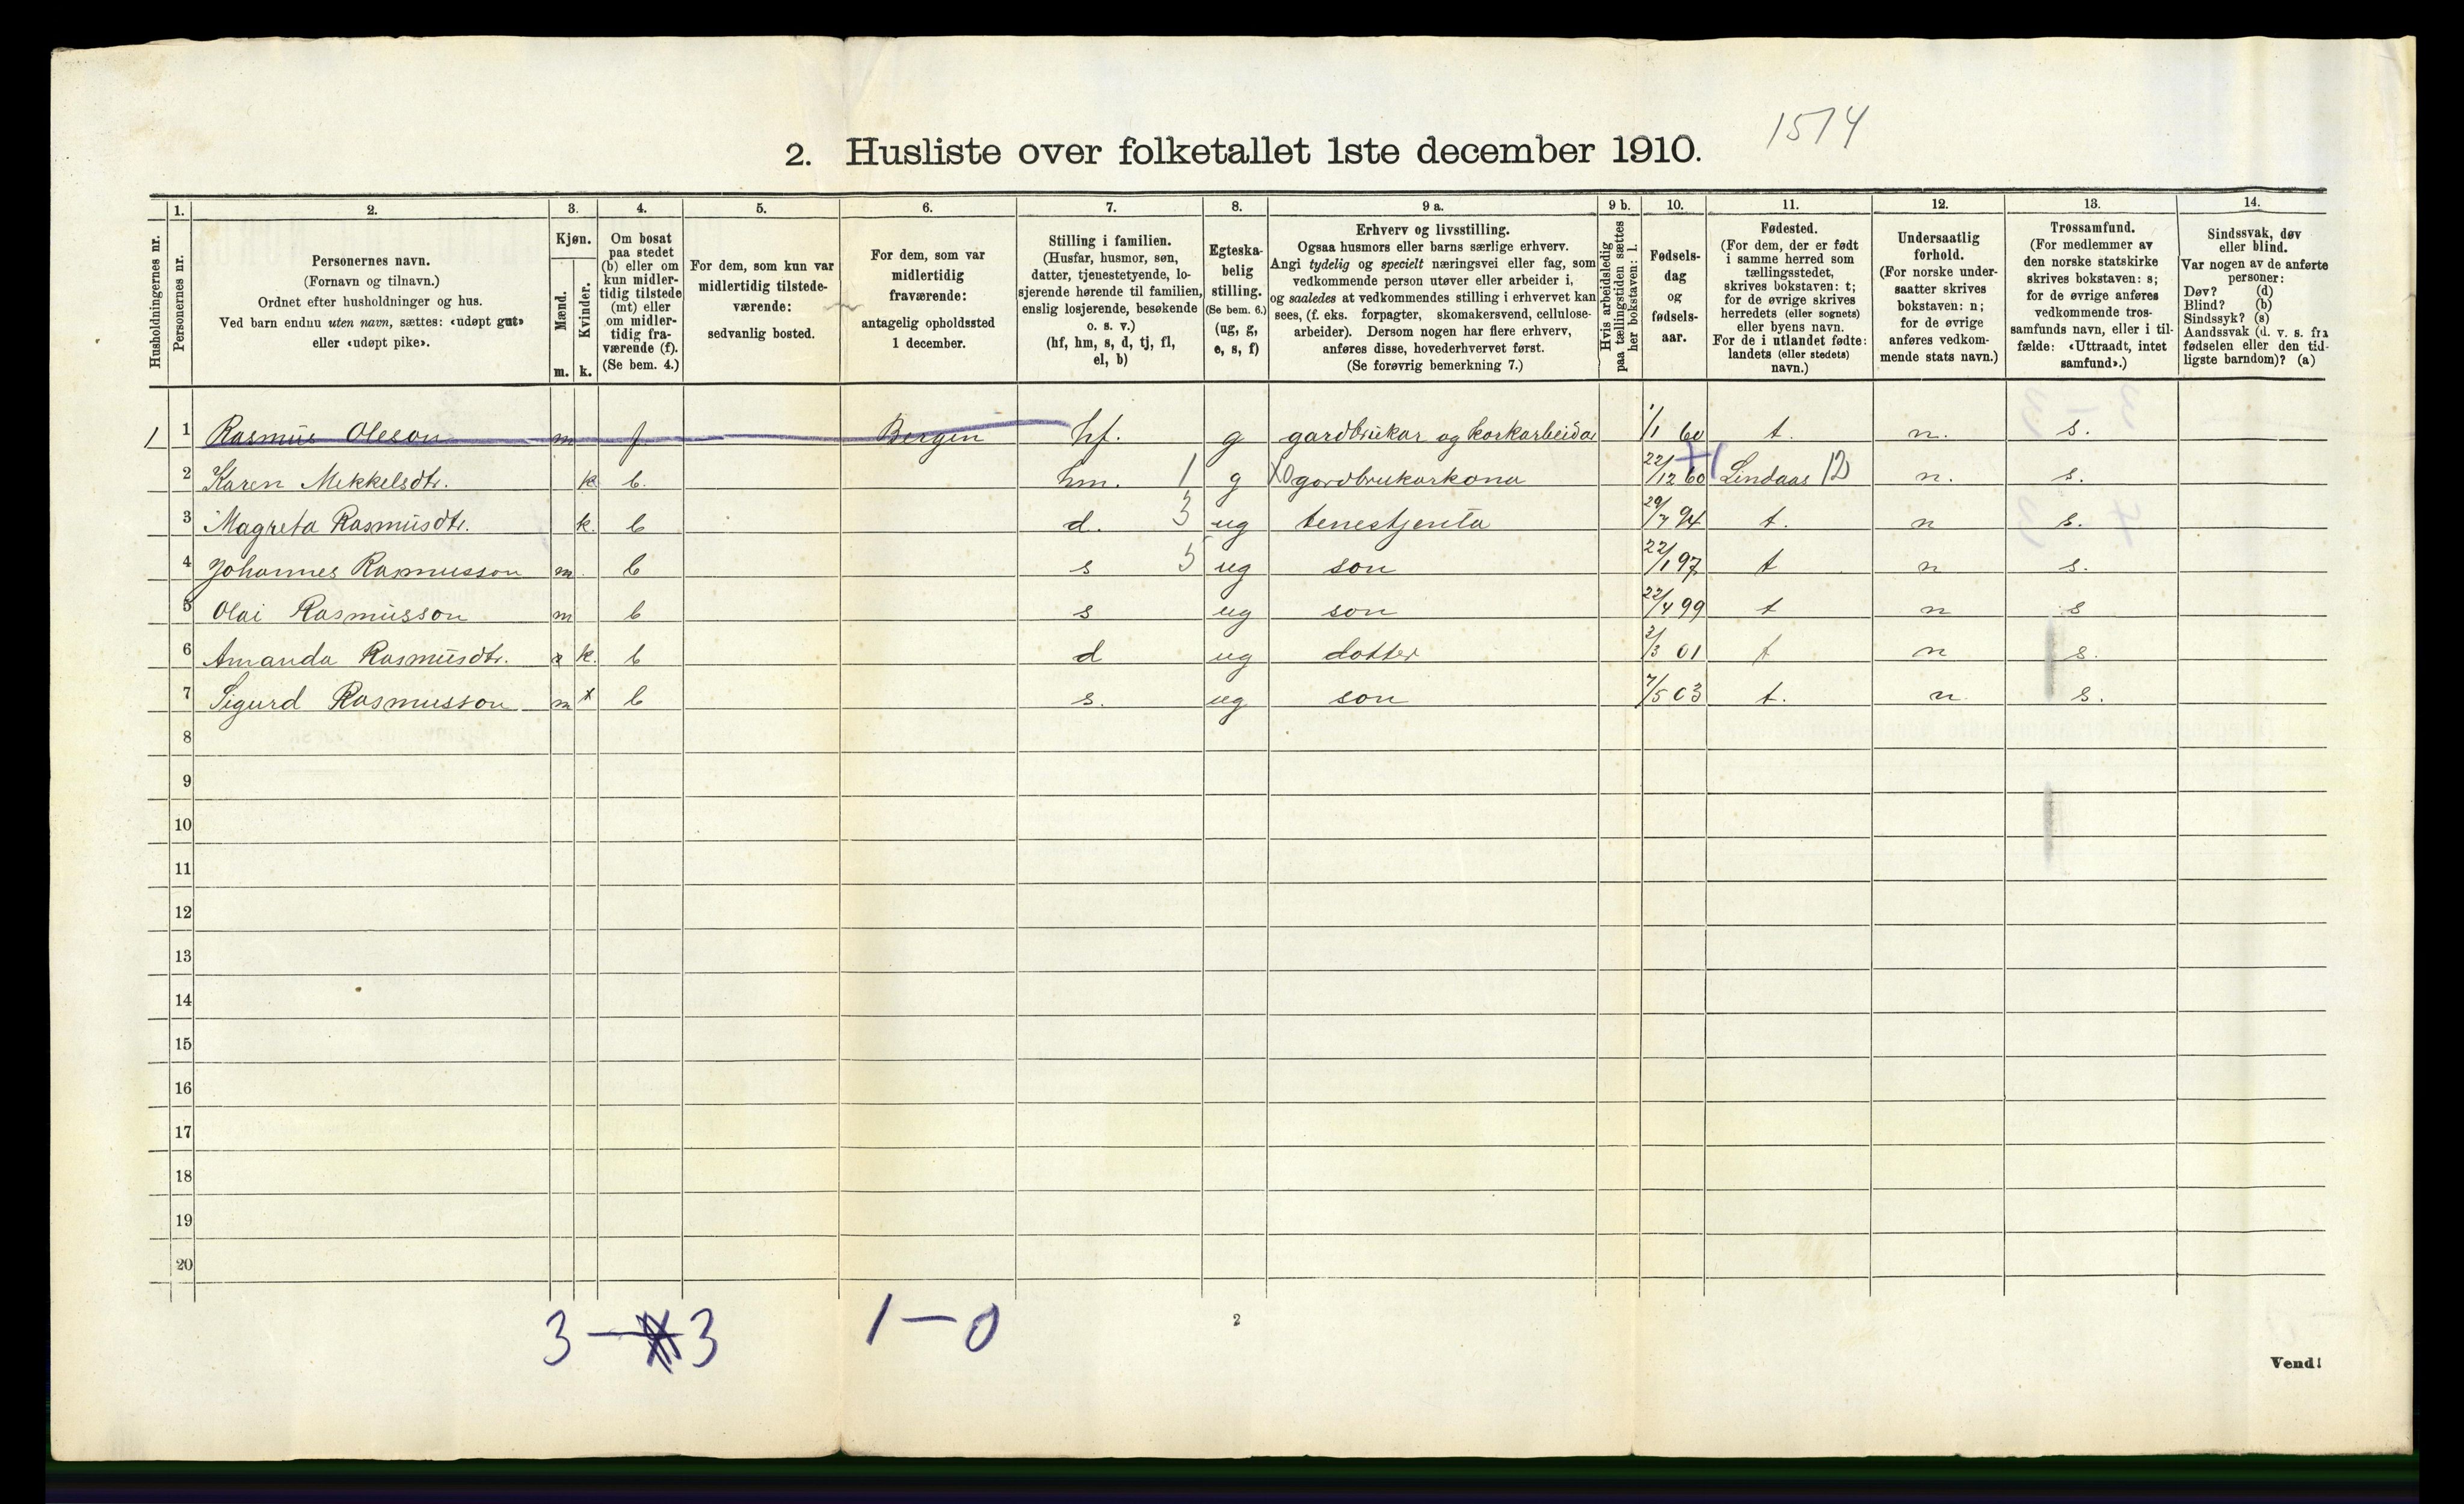 1514
2. Husliste over folketallet 1ste december 1910.
Husholdningernes nr.
1. Personernes nr.
2. Personernes navn.
(Fornavn og tilnavn.)
Ordnet efter husholdninger og hus.
Ved barn endnu uten navn, sættes: «udøpt gut»
eller «udøpt pike».
3. Kjøn.
Mænd. Kvinder.
m. k.
4. Om bosat
paa stedet
(b) eller om
kun midler-
tidig tilstede
(mt) eller
om midler-
tidig fra-
værende (f).
(Se bem. 4.)
5. For dem, som kun var
midlertidig tilstede-
værende:
sedvanlig bosted.
6. For dem, som var
midlertidig
fraværende:
antagelig opholdssted
1 december.
7. Stilling i familien.
(Husfar, husmor, søn,
datter, tjenestetyende, lo-
sjerende hørende til familien,
enslig losjerende, besøkende
o. s. v.)
(hf, hm, s, d, tj, fl,
el, b)
8. Egteska-
belig
stilling.
(Se bem. 6.)
(ug, g,
e, s, f)
9 a. Erhverv og livsstilling.
Ogsaa husmors eller barns særlige erhverv.
Angi tydelig og specielt næringsvei eller fag, som
vedkommende person utøver eller arbeider i,
og saaledes at vedkommendes stilling i erhvervet kan
sees, (f. eks. forpagter, skomakersvend, cellulose-
arbeider). Dersom nogen har flere erhverv,
anføres disse, hovederhvervet først.
(Se forøvrig bemerkning 7.)
9 b. Hvis arbeidsledig
paa tællingstiden sættes
her bokstaven: l.
10. Fødsels-
dag
og
fødsels-
aar.
11. Fødested.
(For dem, der er født
i samme herred som
tællingsstedet,
skrives bokstaven: t;
for de øvrige skrives
herredets (eller sognets)
eller byens navn.
For de i utlandet fødte:
landets (eller stedets)
navn.)
12. Undersaatlig
forhold.
(For norske under-
saatter skrives
bokstaven: n;
for de øvrige
anføres vedkom-
mende stats navn.)
13. Trossamfund.
(For medlemmer av
den norske statskirke
skrives bokstaven: s;
for de øvrige anføres
vedkommende tros-
samfunds navn, eller i til-
fælde: «Uttraadt, intet
samfund».)
14. Sindssvak, døv
eller blind.
Var nogen av de anførte
personer:
Døv? (d)
Blind? (b)
Sindssyk? (s)
Aandssvak (d. v. s. fra
fødselen eller den tid-
ligste barndom)? (a)
1 1 Rasmus Oleson m f Bergen hf. g gardbrukar og korkarbeidar 1/1 60 t. n. s.
2 Karen Mekkelsdtr. k b. hm. 1 g gardbrukarkona 22/12 60 Lindaas 12 n. s.
3 Magreta Rasmusdtr. k. b d. 3 ug tenestjenta 29/7 94 t. n s.
4 Johannes Rasmusson m. b s 5 ug son 22/1 97 t n s.
5 Olai Rasmusson m b s ug son 22/4 99 t n s
6 Amanda Rasmusdtr. k. b d ug dotter 2/3 01 t n s.
7 Sigurd Rasmusson m b s. ug son 7/5 03 t. n s.
8
9
10
11
12
13
14
15
16
17
18
19
20
3 — 3 1 — 0
2
Vend!